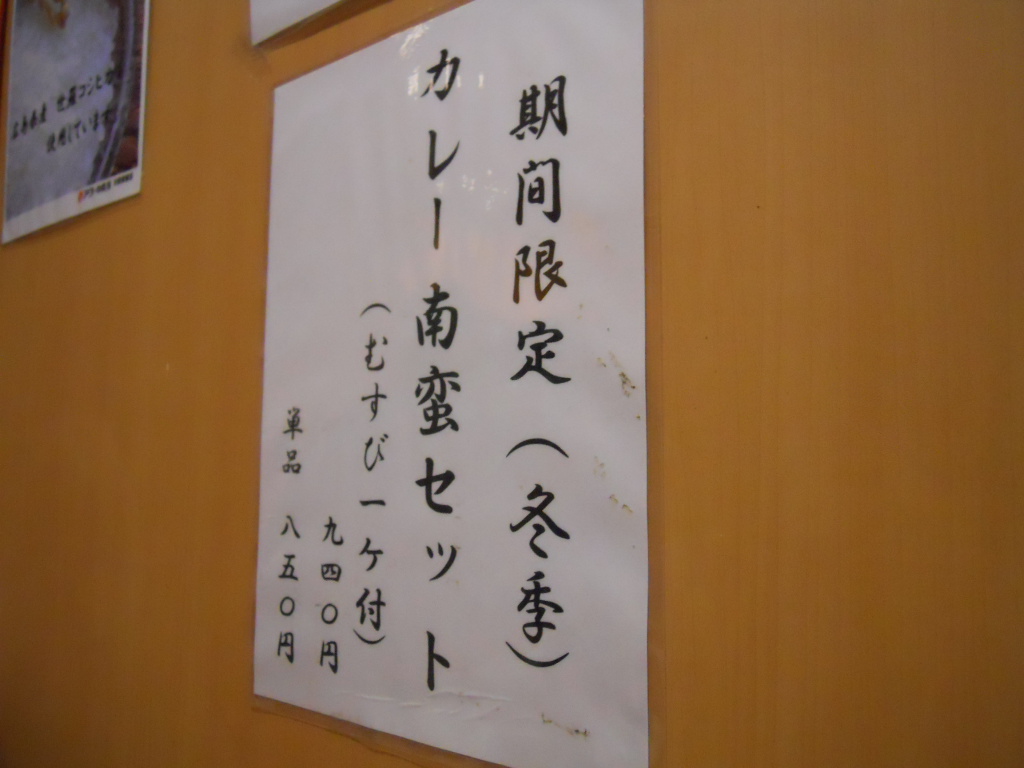 期間限定（冬季）
カレー南蛮セット
（むすび一ケ付）
九四〇円
単品 八五〇円
使用しています